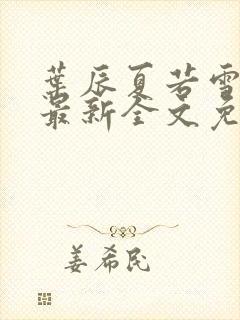 葉辰夏若雪
最新全文免
姜希民